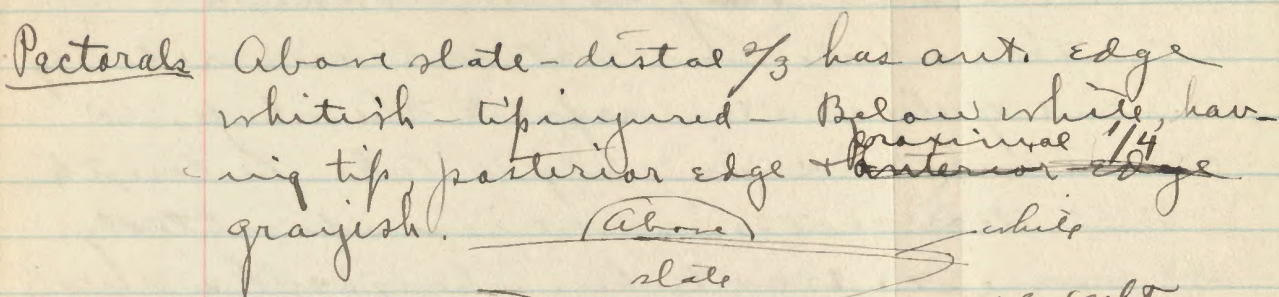 Pectorals Above slate - distal 2/3 has ant. edge
whitish - tip injured - Below white, hav-
proximal 1/4
ing tip, posterior edge + anterior edge
grayish. Above
white
slate